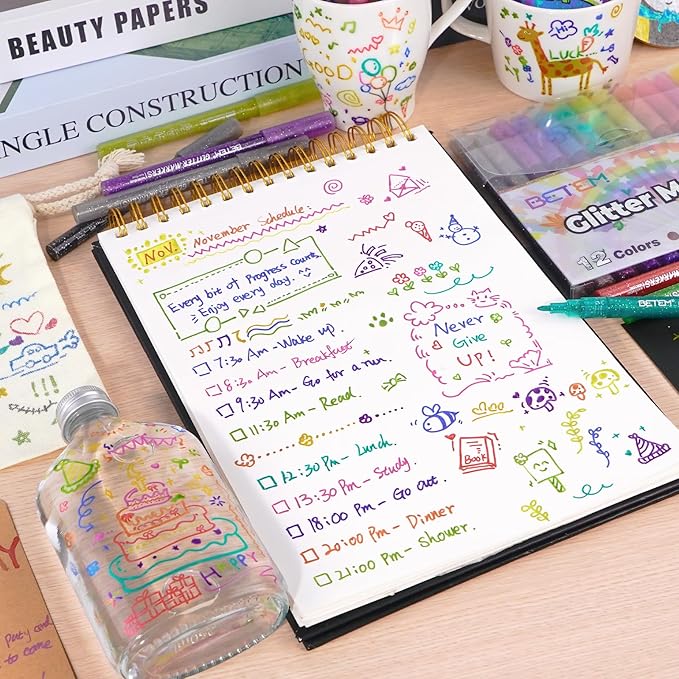 BEAUTY PAPERS
NGLE CONSTRUCTION
BETEM GLITTER MARKERS
Hi
Luck
BETEM
Glitter M
12 Colors
BETEM
Nov.
November Schedule:
Every bit of Progress counts,
Enjoy every day.
7:30 Am - Wake up.
8:30 Am - Breakfast
9:30 Am - Go for a run.
11:30 Am - Read.
12:30 Pm - Lunch.
13:30 Pm - Study.
18:00 Pm - Go out.
20:00 Pm - Dinner
21:00 Pm - Shower.
Never
Give
UP!
Book
Happy
Paty card
to come